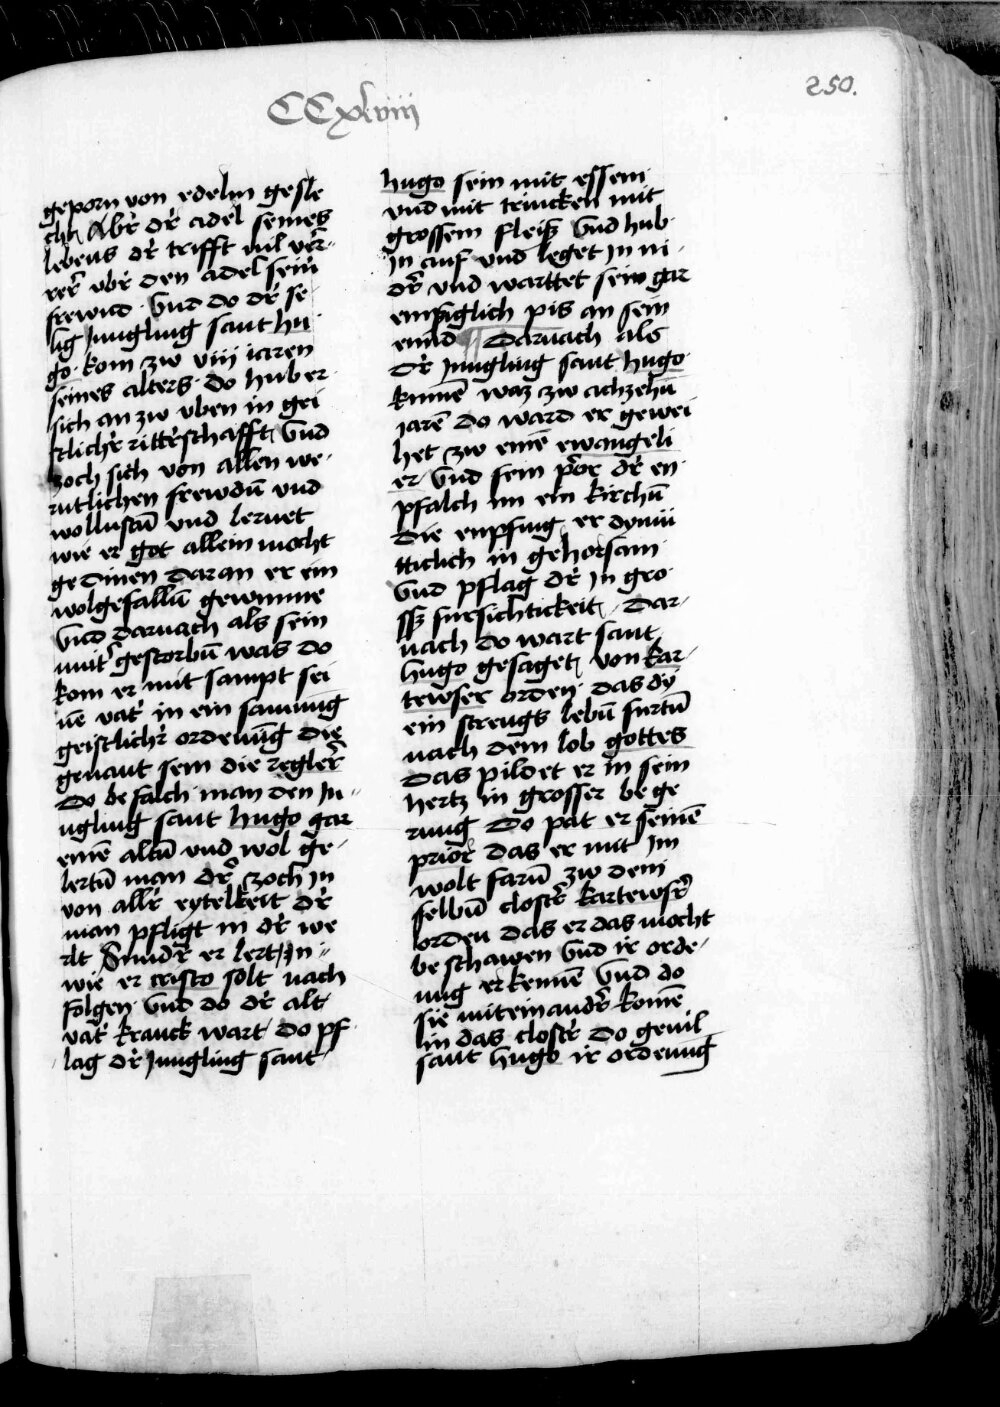 CCxlviii
250.
geporn von edelm gesle
cht Abr̄ dr̄ adel seines
lebens dr̄ trifft vil ver-
rer̄ vbr̄ den adel seinr̄
frewnd · Vnd do dr̄ se-
lig Jungling sant hu
go · kom zw viij iaren
seines alters · do hub er ·
sich an zw vben in gei
stlichr̄ ritterschafft Vnd
zoch sich von allen we-
rntlichen frewdn̄ vnd
wollustn̄ vnd lernet
wie er got allein mocht
gedinen daran er ein
wolgefalln̄ gewunne
Vnd darnach als sein
mutr̄ gestorbn̄ was do
kom er mit sampt sei
nē vatr̄ in ein samung
geistlichr̄ ordenūg die
genant sein die reglēr
Do befalch man den Ju-
ngling sant hugo gar
einē altn̄ vnd wol ge-
lertn̄ man dr̄ zoch jn
von allr̄ eytelkeit dr̄
man pfligt in dr̄ we
rlt Sundr̄ er lert jn
wie er cristo solt nach
folgen Vnd do dr̄ alt
vatr̄ kranck wart do pf
lag dr̄ Jungling sant
hugo sein mit essen
vnd mit trincken mit
grossem fleiß Vnd hub
Jn auf vnd leget Jn ni-
dr̄ vnd warttet sein gar
emsiglich pis an sein
end Darnach als
dr̄ Jungling sant hugo
kumē waz zw achzehn̄
jarē do ward er gewei
het zw einē ewangeli
er Vnd sein p̄or dr̄ en
pfalch im ein kirchn̄
die enpfing er dymu
ttiglich in gehorsam
Vnd pflag dr̄ Jn gro
ssz fursichtickeit Dar-
nach do wart sant
hugo gesaget von kar-
tewser orden das dy
ein strengs lebn̄ furtn̄
nach dem lob gottes
das pildet er in sein
hertz in grosser bege
rung Do pat er seinē
prior das er mit Jm
wolt farn̄ zw dem
selbn̄ clostr̄ kartewsr̄
orden das er das mocht
beschawen Vnd ir orde-
nung erkennē Vnd do
sie miteinandr̄ komē
in das clostr̄ do geuil
sant hugo ir ordenung